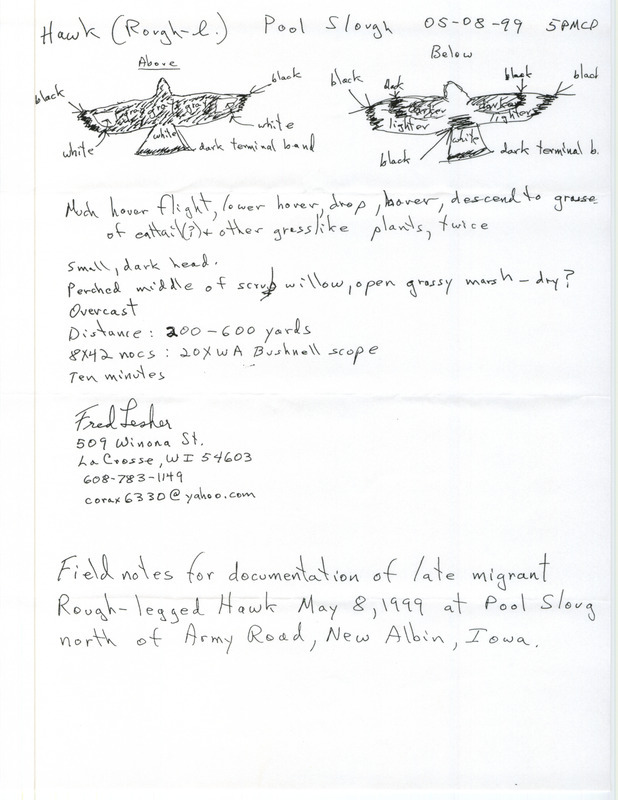 Hawk (Rough-l.) Pool Slough 05-08-99 5PMCD
Above
Below
black
black
black
black
black
black
white
white
white
gra
dark terminal band
darker
lighter
darker
lighter
black
white
dark terminal b.
Much hover flight, lower hover, drop, hover, descend to grasse
of cattail(?)+ other grasslike plants, twice
Small, dark head.
Perched middle of scrub willow, open grassy marsh - dry?
Overcast
Distance: 200-600 yards
8X42 nocs: 20X WA Bushnell scope
Ten minutes
Fred Lesher
509 Winona St.
La Crosse, WI 54603
608-783-1149
corax6330@yahoo.com
Field notes for documentation of late migrant
Rough-legged Hawk May 8, 1999 at Pool Sloug
north of Army Road, New Albin, Iowa.